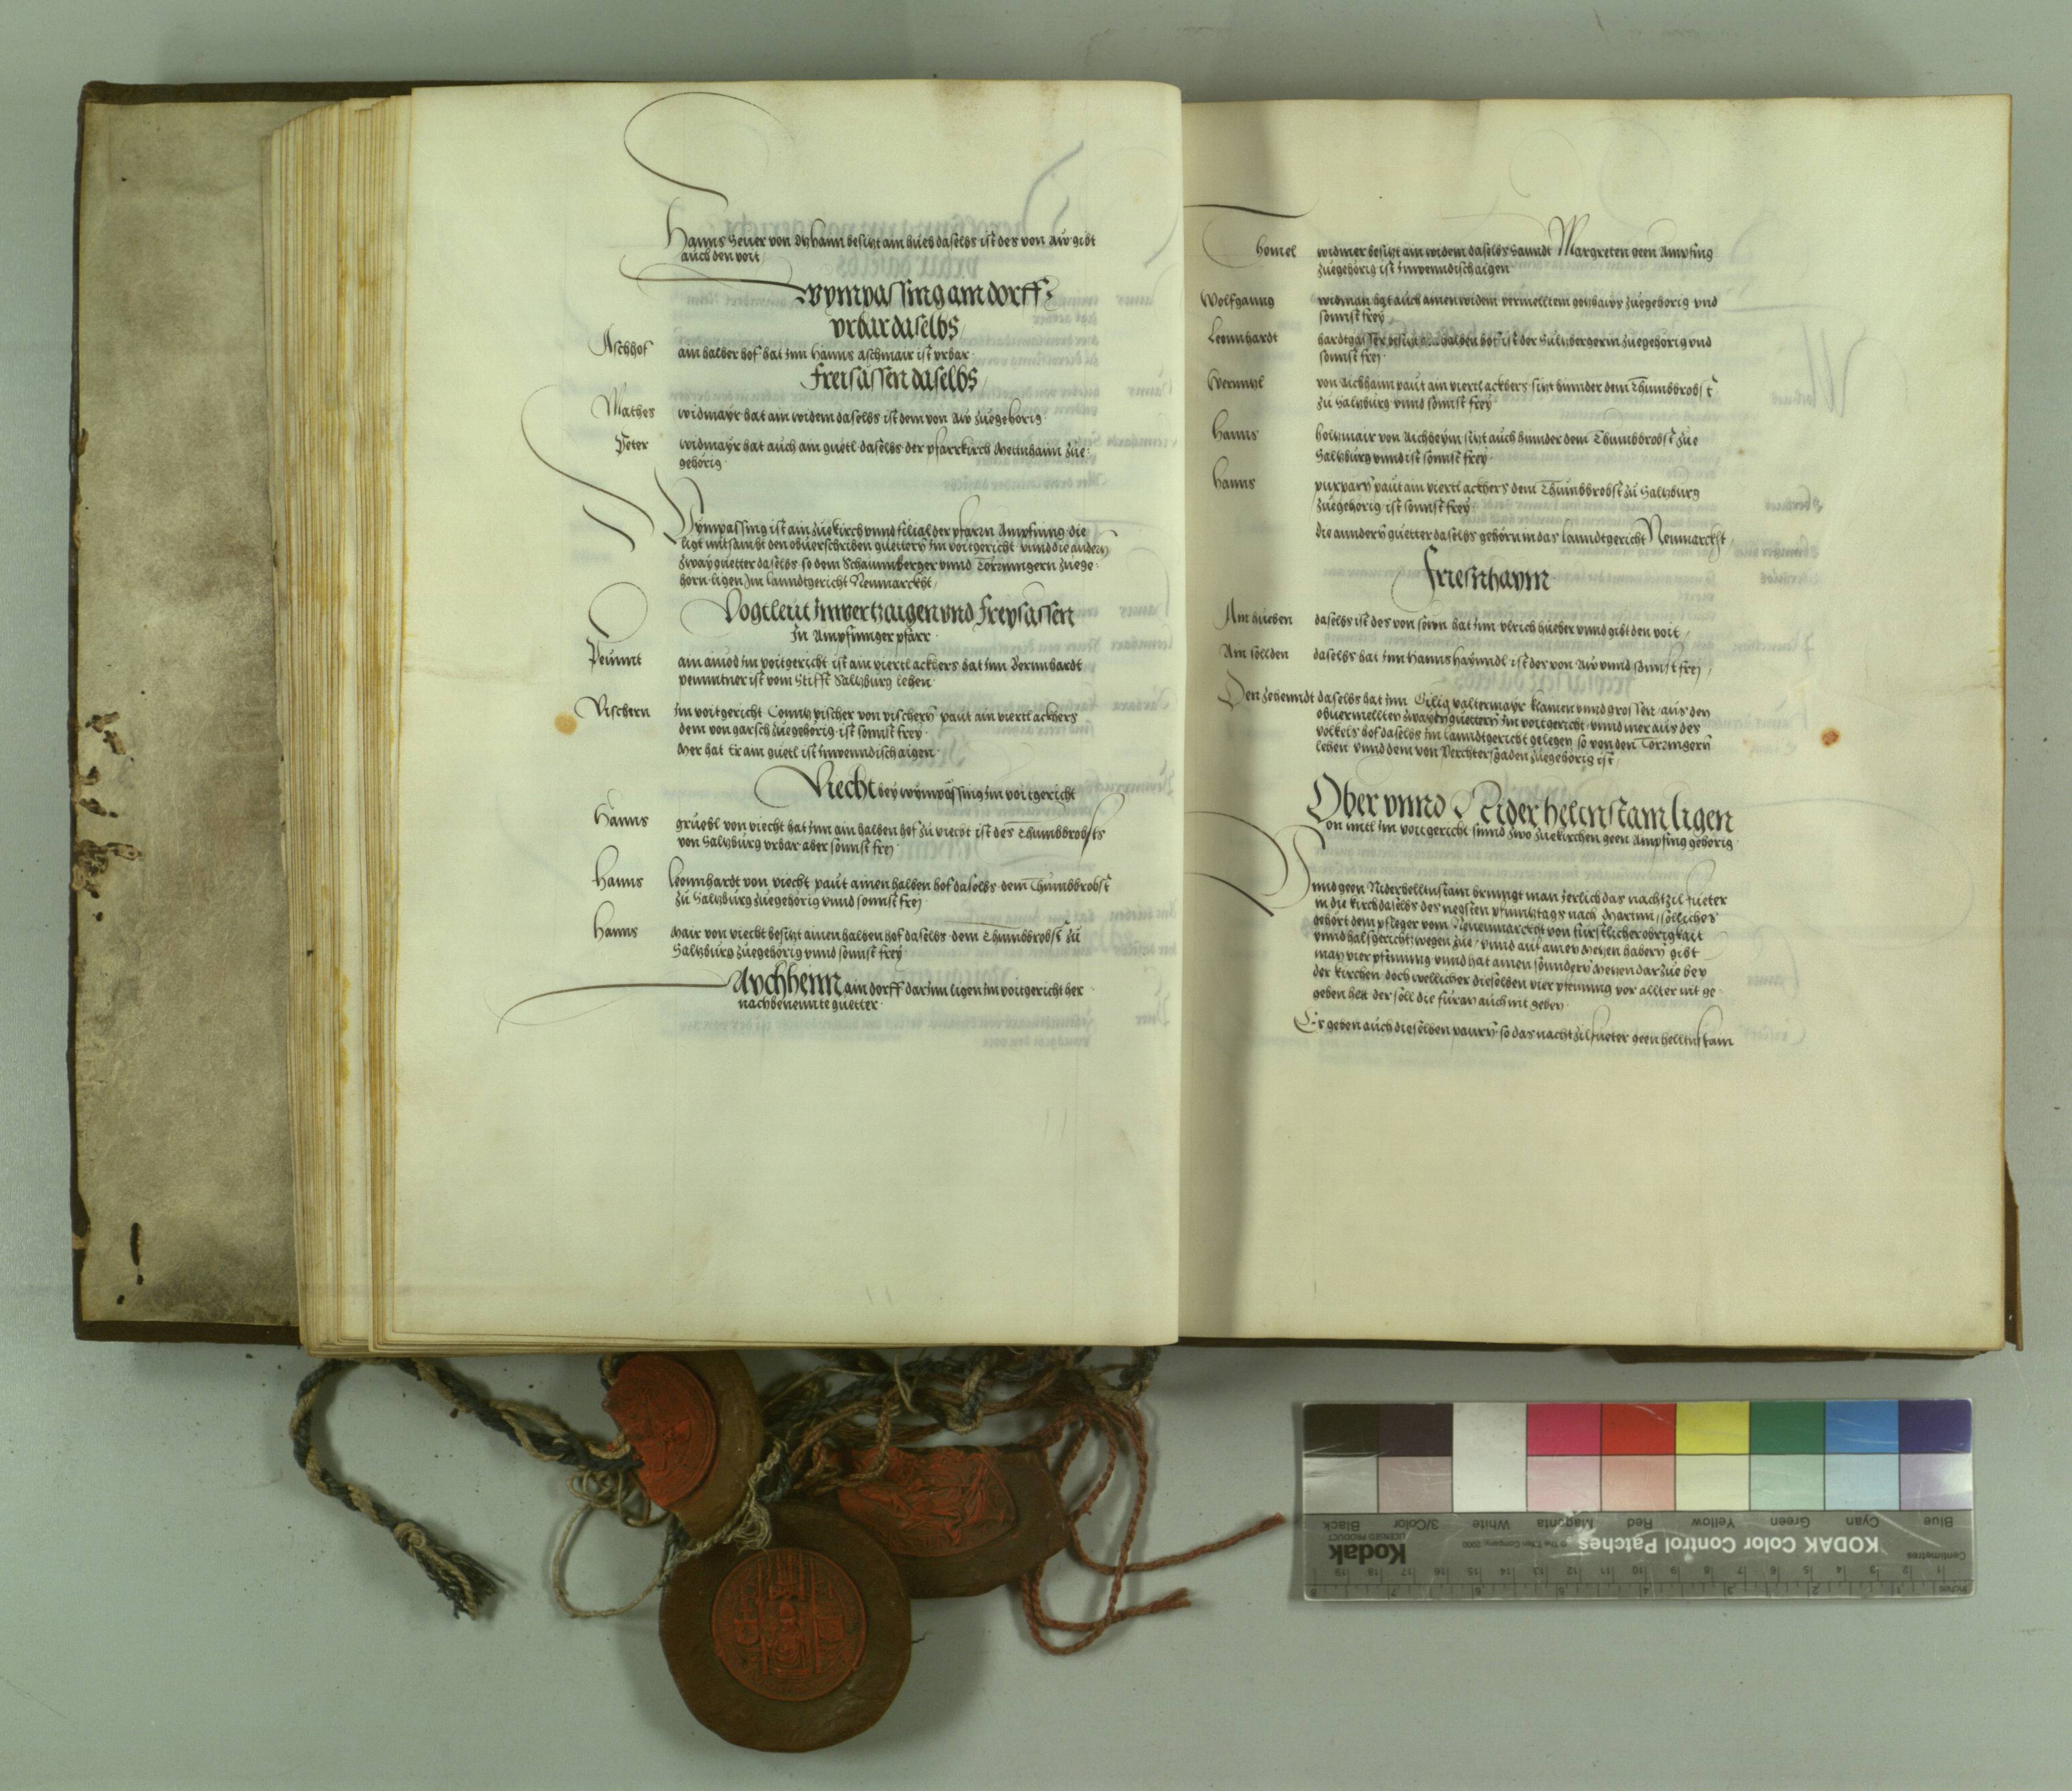 Hanns Seuer von Ayhaim besitzt ain hueb daselbs ist des von Aw gibt
auch den voit
Wympassing am dorff
vrbar daselbs
Aschhof ain halber hof hat inn Hanns aschmair ist vrbar
Freisassen daselbs
Mathes widmayr hat ain widem daselbs ist dem von Aw zuegehorig
Peter widmayr hat auch ain guetl daselbs der pfarrkirch Mettnhaim zue-
gehorig
Wympassing ist ain zuekirch vnnd filial der pfarrn Ampfning die
ligt mitsambt den obuerschriben guettern im voitgericht vnnd die andern
zway guetter daselbs so dem Schaumberger vnnd Törringern zuege-
horn ligen im lanndtgericht Neumarckht
Vogtleut Inwertzaigen vnd Freysassen
In Ampfinger pfarr
Peunnt ain ainöd im voitgericht ist ain viertl ackhers hat inn Bernnhardt
peunntner ist vom Stifft Saltzburg lehen
Vischern im voitgericht Conntz vischer von vischern paut ain viertl ackhers
dem von garsch zuegehorig ist sonnst frey
Mer hat er ain guetl ist inwenndisch aigen
Viecht bey wympassing im voitgericht
Hanns gruebl von viecht hat inn ain halben hof zu viecht ist des Thumbbrobsts
von Saltzburg vrbar aber sonnst frey
Hanns leonnhardt von viecht paut ainen halben hof daselbs dem Thumbbrobst
zu Saltzburg zuegehorig vnnd sonnst frey
Hanns Mair von viecht besitzt ainen halben hof daselbs dem Thumbbrobst zu
Saltzburg zuegehorig vnnd sonnst frey
Aychhenn ain dorff darinn ligen im voitgericht her
nachbenennte guetter
Thomel widmer besitzt ain widem daselbs Sanndt Margreten geen Ampfing
zuegehörig ist inwenndisch aigen
Wolfganng widman hat auch ainen widem vermelltem gotzhaws zuegehorig vnd
sonnst frey
Leonnhardt hardtgasser besitzt ain halben hof ist der Sultzbergerin zuegehorig vnd
sonnst frey
Wernntzl von Aichhaim paut ain viertl ackhers sitzt hinnder dem Thumbbrobst
zu Saltzburg vnnd sonnst frey
Hanns holtzmair von Aichheym sitzt auch hinnder dem Thumbbrobst zue
Saltzburg vnnd ist sonnst frey
Hanns purpaur paut ain viertl ackhers dem Thumbbrobst zu Saltzburg
zuegehorig ist sonnst frey
die anndern guetter daselbs gehörn in das lanndtgericht Neumarckht
Friesnhaym
Am hueben daselbs ist des von Seon hat inn vlrich hueber vnnd gibt den voit
Am sollden daselbs hat inn Hanns haynndl ist des von Aw vnnd sonnst frey
Den zehenndt daselbs hat inn Gilig valtermayr klainen vnnd grossen aus den
obuermellten zwayen guettern im voitgericht vnnd mer aus des
volkels hof daselbs im lanndtgericht gelegen so von den Törringern
lehen vnnd dem von Perchtersgaden zuegehorig ist
Ober vnnd Niderhelnstam ligen
on mitl im voitgericht sinnd zwo zuekirchen geen Ampfing gehorig
Vnnd geen Niderhellnstain bringt man jerlich das nachtzilfueter
in die kirch daselbs des negsten pfintztags nach Martini sölliches
gehört dem pfleger vom Neuenmarckht von fürstlicher obrigkait
vnnd halsgericht wegen zue vnnd auf ainen Metzen habern gibt
man vier pfenning vnnd hat ainen sonndern Metzen darzue bey
der kirchen doch wellicher dieselben vier pfenning vor allter nit ge-
geben het der soll die füran auch nit geben
Er geben auch dieselben paurn so das nachtzilfueter geen hellnstain
Blue
Cyan
Green
Yellow
Red
Magenta
White
3/Color
Black
KODAK Color Control Patches
Kodak
LICENSED PRODUCT
© The Tiffen Company, 2000
Centimetres
1 2 3 4 5 6 7 8 9 10 11 12 13 14 15 16 17 18 19
Inches
1 2 3 4 5 6 7 8